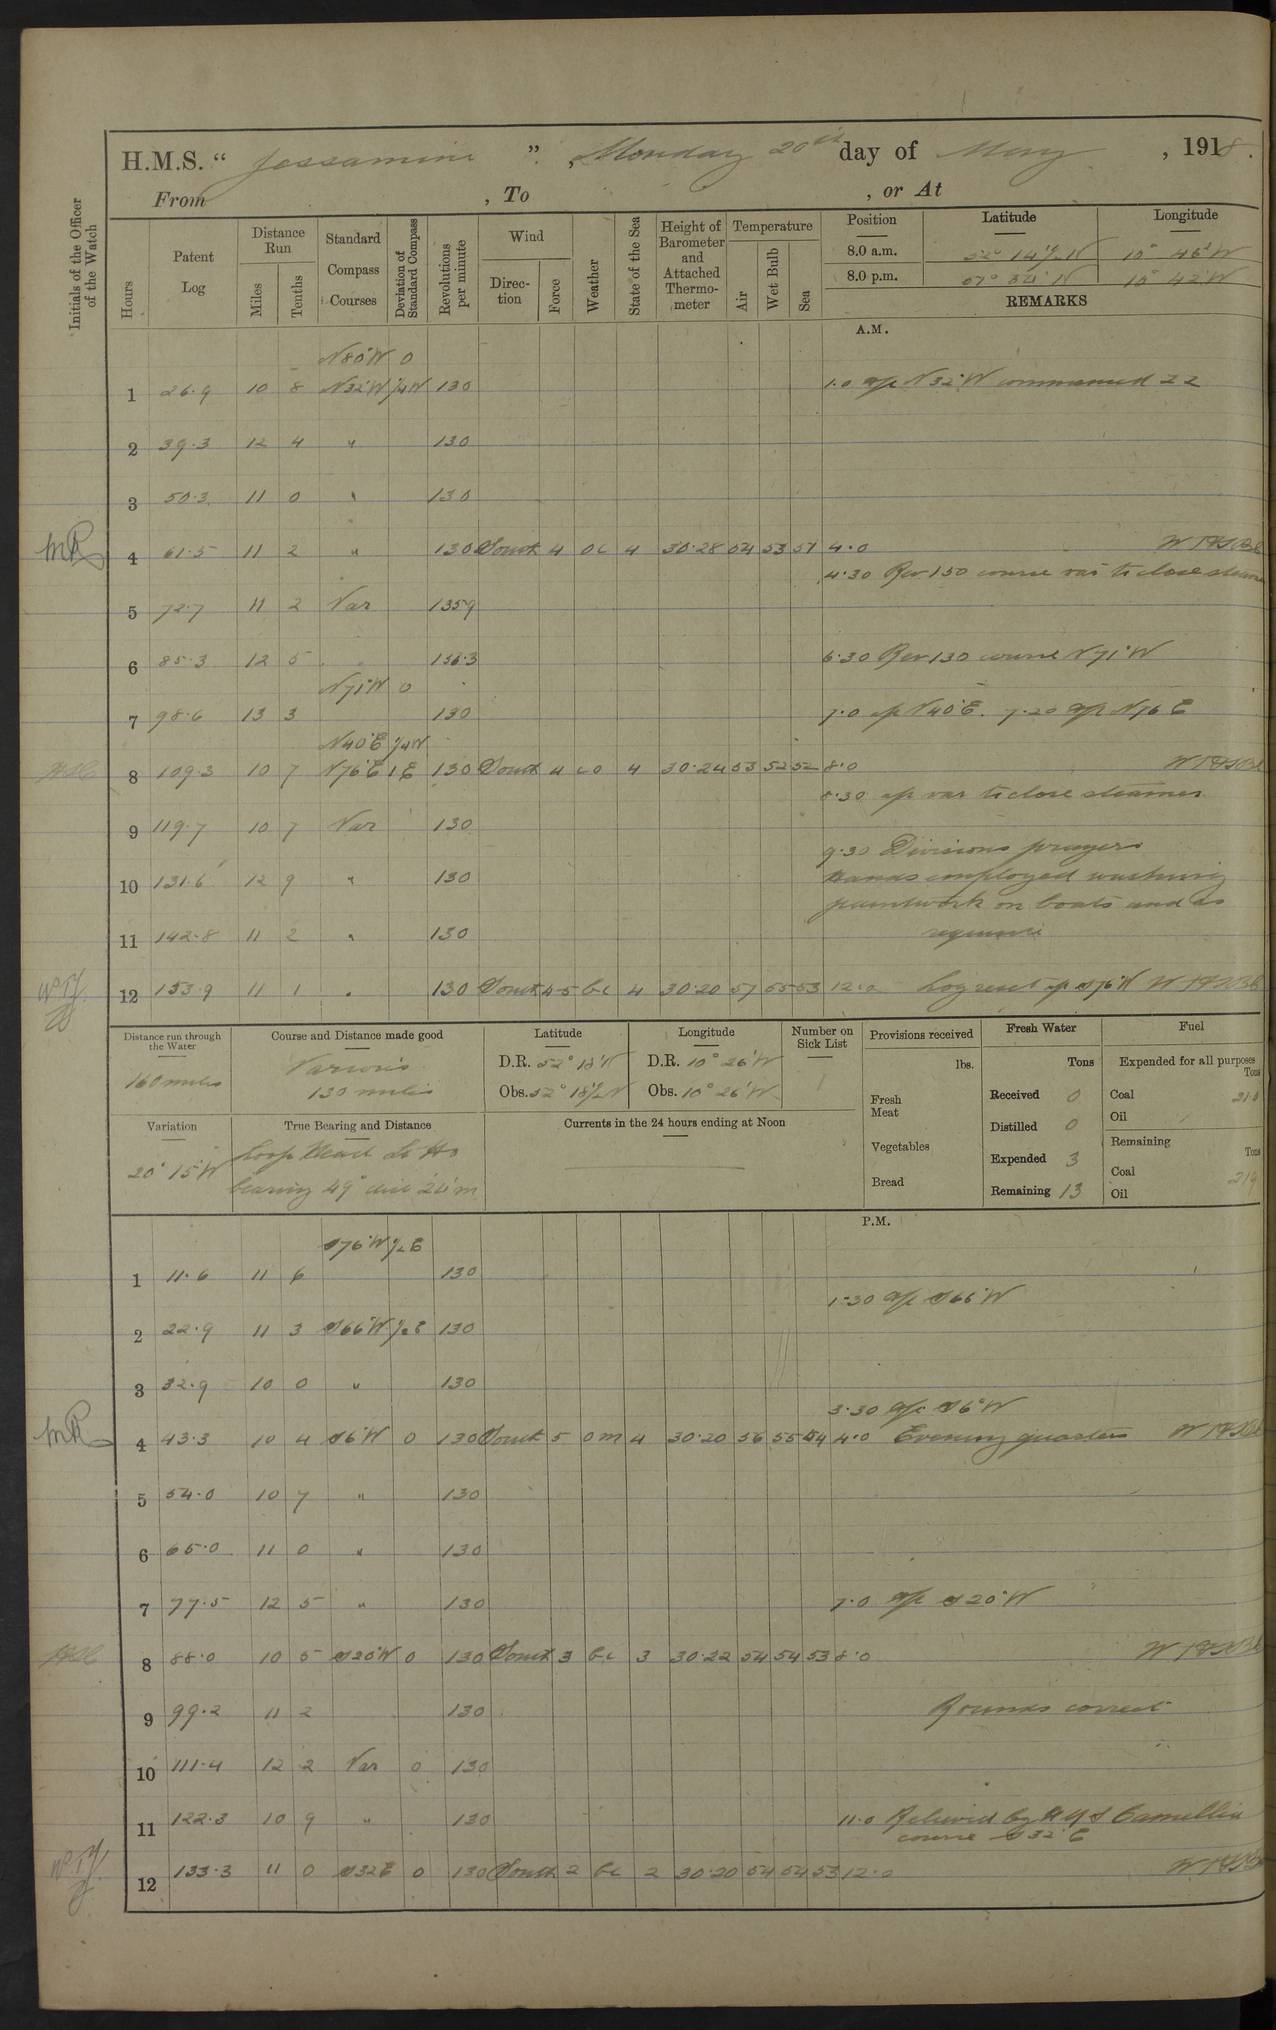 H.M.S. " Jessamine ", Monday 20th day of May, 1918.
From , To , or At
Initials of the Officer of the Watch
Hours
Patent Log
Distance Run
Miles
Tenths
Standard Compass Courses
Deviation of Standard Compass
Revolutions per minute
Wind
Direction
Force
Weather
State of the Sea
Height of Barometer and Attached Thermometer
Temperature
Air
Wet Bulb
Sea
Position Latitude Longitude
8.0 a.m. 52° 14½ N 10° 46' W
8.0 p.m. 34' N 10° 42' W
REMARKS
A.M.
N80°W 0
1 26.9 10 8 N32°W ¼W 130 1.0 a/c N32°W commenced 22
2 39.3 12 4 " 130
3 50.3 11 0 " 130
4 61.5 11 2 " 130 South 4 oc 4 30.28 54 53 51 4.0
4.30 Rev 150 course var to close steamer
5 72.7 11 2 Var 135.9
6 85.3 12 5 " 136.3 6.30 Rev 130 course N71°W
N71°W 0
7 98.6 13 3 130 7.0 a/c N40°E. 7.20 a/c N76 E
N40°E ¼W
8 109.3 10 7 N76°E 1E 130 South 4 co 4 30.24 53 52 52 8.0
8.30 a/c var to close steamer
9 119.7 10 7 Var 130
9.30 Divisions prayers
10 131.6 12 9 " 130 Hands employed washing
paintwork on boats and as
11 142.8 11 2 " 130 requisite
12 153.9 11 1 " 130 South 4-5 bc 4 30.20 57 55 53 12.0 Log reset a/c S76°W
Distance run through the Water
160 miles
Course and Distance made good
Various
130 miles
Latitude
D.R. 52° 18' N
Obs. 52° 18½ N
Longitude
D.R. 10° 26' W
Obs. 10° 26' W
Number on Sick List
1
Provisions received
lbs.
Fresh Meat
Vegetables
Bread
Fresh Water
Tons
Received 0
Distilled 0
Expended 3
Remaining 13
Fuel
Expended for all purposes
Tons
Coal 21.0
Oil
Remaining
Tons
Coal 219
Oil
Variation
20° 15' W
True Bearing and Distance
Loop Head Lt Ho
bearing 49° dist 24 m
Currents in the 24 hours ending at Noon
P.M.
S76°W ½E
1 11.6 11 6 130
1.30 a/c S66°W
2 22.9 11 3 S66°W ½E 130
3 32.9 10 0 " 130
3.30 a/c S6°W
4 43.3 10 4 S6°W 0 130 South 5 om 4 30.20 56 55 54 4.0 Evening quarters
5 54.0 10 7 " 130
6 65.0 11 0 " 130
7 77.5 12 5 " 130 7.0 a/c S20°W
8 88.0 10 5 S20°W 0 130 South 3 bc 3 30.22 54 54 53 8.0
9 99.2 11 2 130 Rounds correct
10 111.4 12 2 Var 0 130
11 122.3 10 9 " 130 11.0 Relieved by HMS Camellia
course S32°E
12 133.3 11 0 S32E 0 130 South 2 bc 2 30.20 54 54 53 12.0